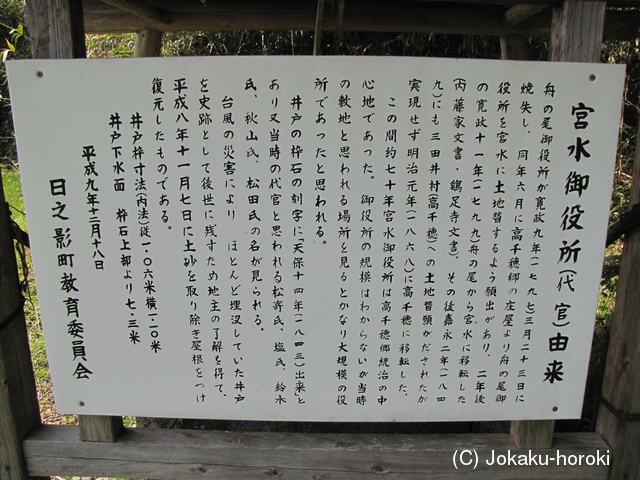 宮水御役所(代官)由来
舟の尾御役所が寛政九年(一七九七)三月二十三日に
焼失し、同年六月に高千穂郷の庄屋より舟の尾御
役所を宮水に土地替するよう願出があり、二年後
の寛政十一年(一七九九)舟の尾から宮水に移転した
(内藤家文書・鶏足寺文書)、その後嘉永二年(一八四
九)にも三田井村(高千穂)への土地替願がだされたが
実現せず明治元年(一八六八)に高千穂に移転した、
この間約七十年宮水御役所は高千穂郷統治の中
心地であった。御役所の規模はわからないが当時
の敷地と思われる場所を見るとかなり大規模の役
所であったと思われる。
井戸の枠石の刻字に「天保十四年(一八四三)出来」と
あり又当時の代官と思われる松嵜氏、塩氏、鈴木
氏、秋山氏、松田氏の名が見られる。
台風の災害により ほとんど埋没していた井戸
を史跡として後世に残すため地主の了解を得て、
平成八年十一月七日に土砂を取り除き屋根をつけ
復元したものである。
井戸枠寸法(内法)従一・〇六米横一・二〇米
井戸下水面 枠石上部より七・三米
平成九年十二月十八日
日之影町教育委員会
(C) Jokaku-horoki